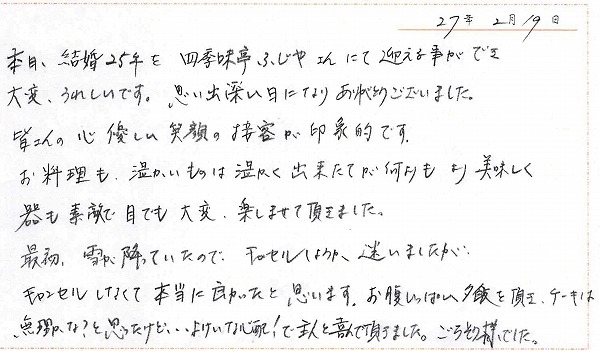 27年 2月19日
本日、結婚25年を 四季味亭ふじや さんにて 迎える事ができ
大変、うれしいです。思い出深い日になり ありがとうございました。
皆さんの 心 優しい 笑顔の 接客が 印象的です。
お料理も、温かいものは 温かく 出来たてが 何よりも 美味しく
器も 素敵で 目でも 大変、楽しませて 頂きました。
最初、雪が降っていたので、キャンセルしようか、迷いましたが…
キャンセル しなくて 本当に 良かったと 思います。お腹いっぱい 夕飯を 頂き、ケーキは
無理かな?と 思ったけど…よけいな心配!で 主人と 喜んで頂きました。ごちそう様でした。